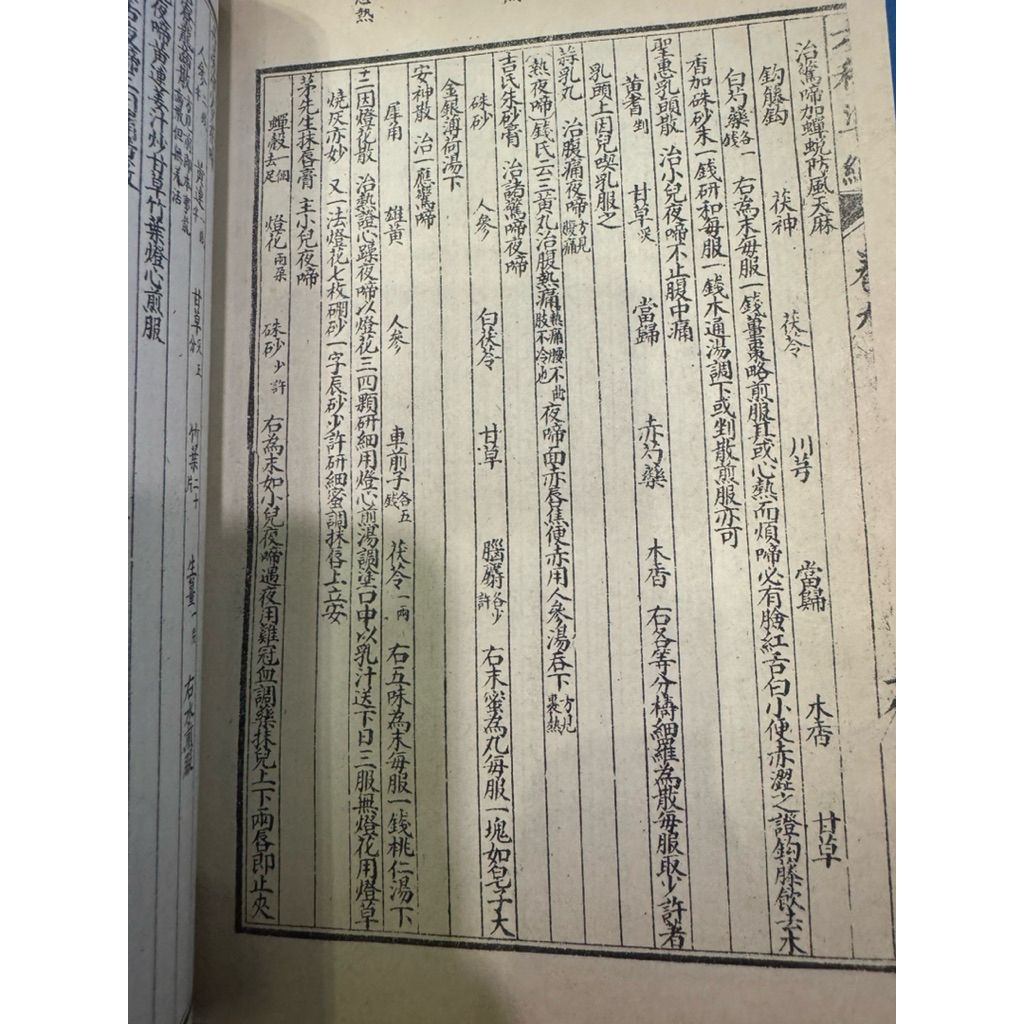 卷九
治驚啼加蟬蛻防風天麻
鈎藤鈎 茯神 茯苓 川芎 當歸 木香 甘草
白芍藥各一錢 右為末每服一錢薑棗略煎服其或心熱而煩啼必有臉紅舌白小便赤澀之證鈎藤飲去木
香加硃砂末一錢研和每服一錢木通湯調下或剉散煎服亦可
聖惠乳頭散 治小兒夜啼不止腹中痛
黄耆剉 甘草炙 當歸 赤芍藥 木香 右各等分檮細羅為散每服取少許著
乳頭上因兒喫乳服之
蒜乳丸 治腹痛夜啼方見腹痛
熱夜啼錢氏云三黄丸治腹熱痛熱痛腰不曲肢不冷也夜啼面赤唇焦便赤用人參湯吞下方見裏熱
吉氏朱砂膏 治諸驚啼夜啼
硃砂 人參 白茯苓 甘草 腦麝各少許 右末蜜為丸每服一塊如皂子大
金銀薄荷湯下
安神散 治一應驚啼
犀角 雄黄 人參 車前子各五錢 茯苓一兩 右五味為末每服一錢桃仁湯下
三因燈花散 治熱證心躁夜啼以燈花三四顆研細用燈心煎湯調塗口中以乳汁送下日三服無燈花用燈草
燒灰亦妙 又一法燈花七枚硼砂一字辰砂少許研細蜜調抹唇上立安
茅先生抹唇膏 主小兒夜啼
蟬殼一個去足 燈花兩朶 硃砂少許 右為末如小兒夜啼遇夜用雞冠血調藥抹兒上下兩唇即止次
夜啼黄連姜汁炒甘草竹葉燈心煎服